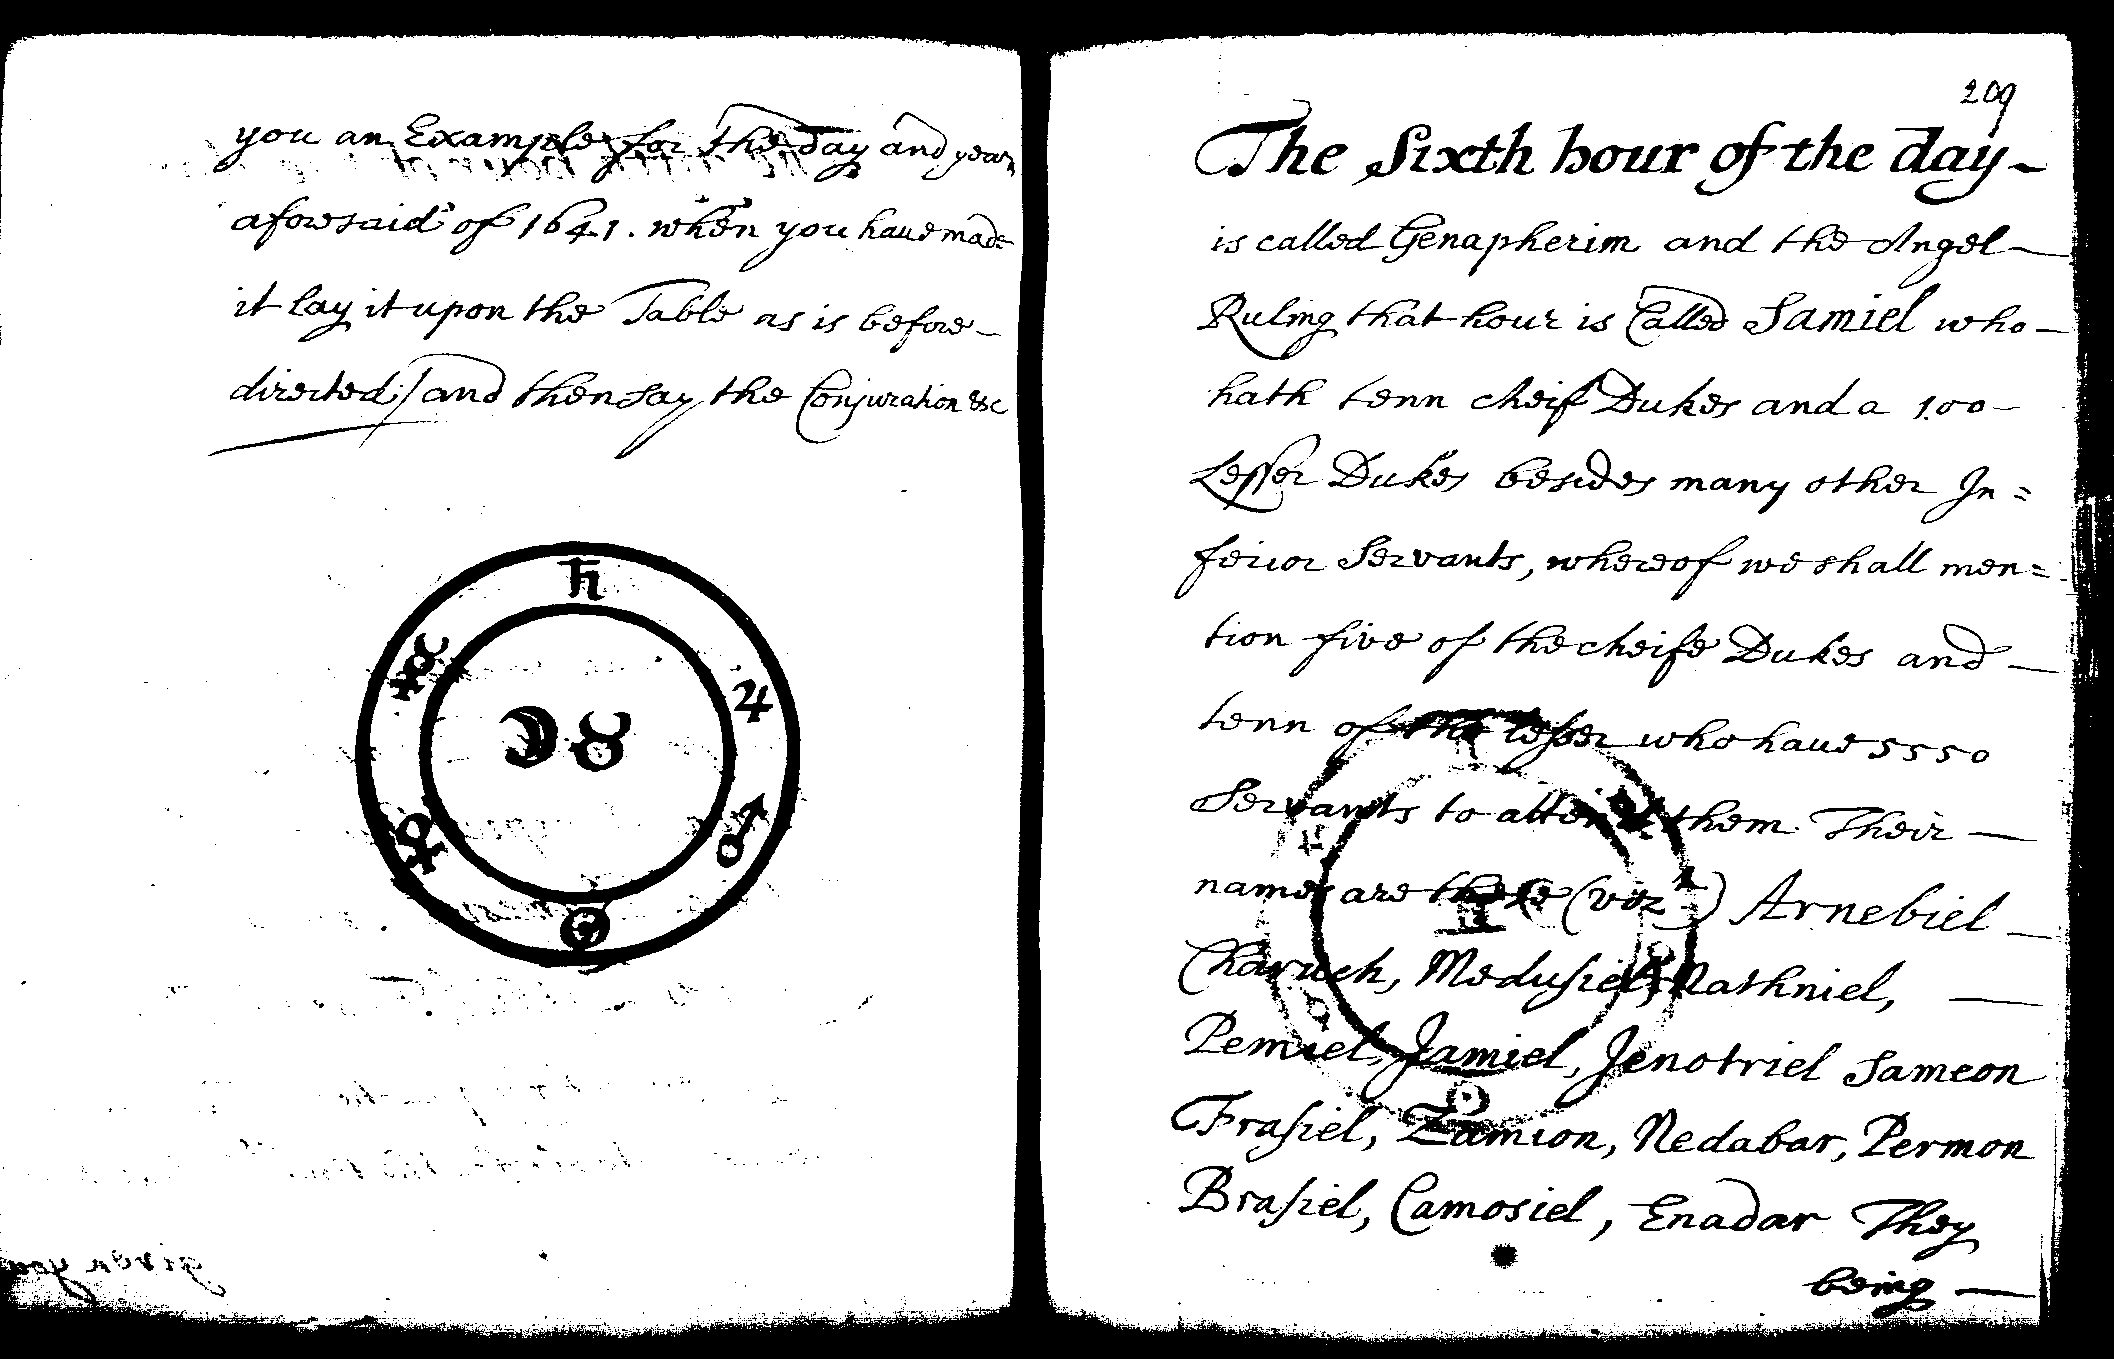 you an Example for the day and year
aforesaid of 1641. when you have made
it lay it upon the Table as is before –
directed / and then say the Conjuration &c
♄
☿
♃
☽ ♉
♀
♂
☉
209
The Sixth hour of the day –
is called Genapherim and the Angel –
Ruling that hour is Called Samiel who –
hath tenn cheif Dukes and a 100 –
Lesser Dukes besides many other In =
ferior Servants, whereof we shall men =
tion five of the cheife Dukes and –
tenn of the lesser who have 5550
Servants to attend them Their –
names are these (viz) Arnebiel –
Charuch, Medusiel, Nathniel, –
Pemiel, Jamiel, Jenotriel Sameon
Trasiel, Zamion, Nedabar, Permon
Brasiel, Camosiel, Enadar They
being –